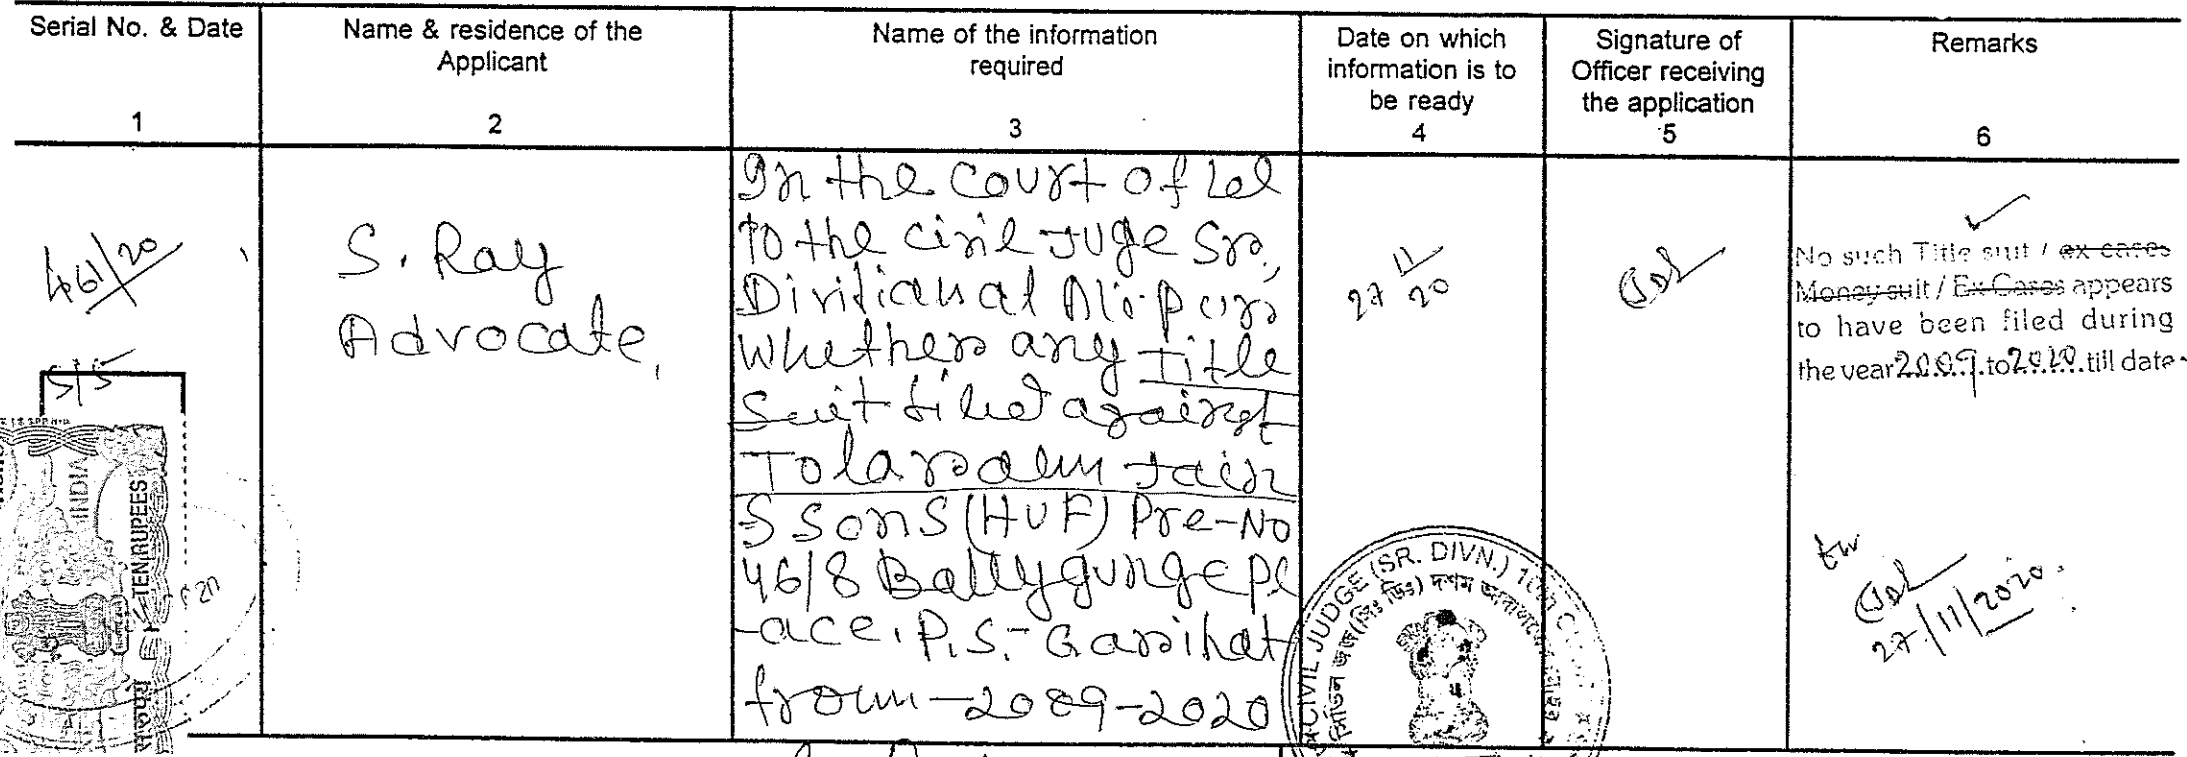 Serial No. & Date
1
Name & residence of the
Applicant
2
Name of the information
required
3
Date on which
information is to
be ready
4
Signature of
Officer receiving
the application
5
Remarks
6
461/20
5/5
S. Ray
Advocate,
In the Court of Ld
to the Civil Juge Sr.,
Divitional Alipur
Whether any Title
Suit filed against
Tolaram Jain
S Sons (HUF) Pre-No
46/8 Ballygunge Pl
-ace, P.S.- Garihat
from - 2009-2020
27 11/20
No such Title suit / ex cases
Money suit / Ex Cases appears
to have been filed during
the year 2009 to 2020 till date.
27/11/2020.
CIVIL JUDGE (SR. DIVN.) 10th
INDIA
TEN RUPEES